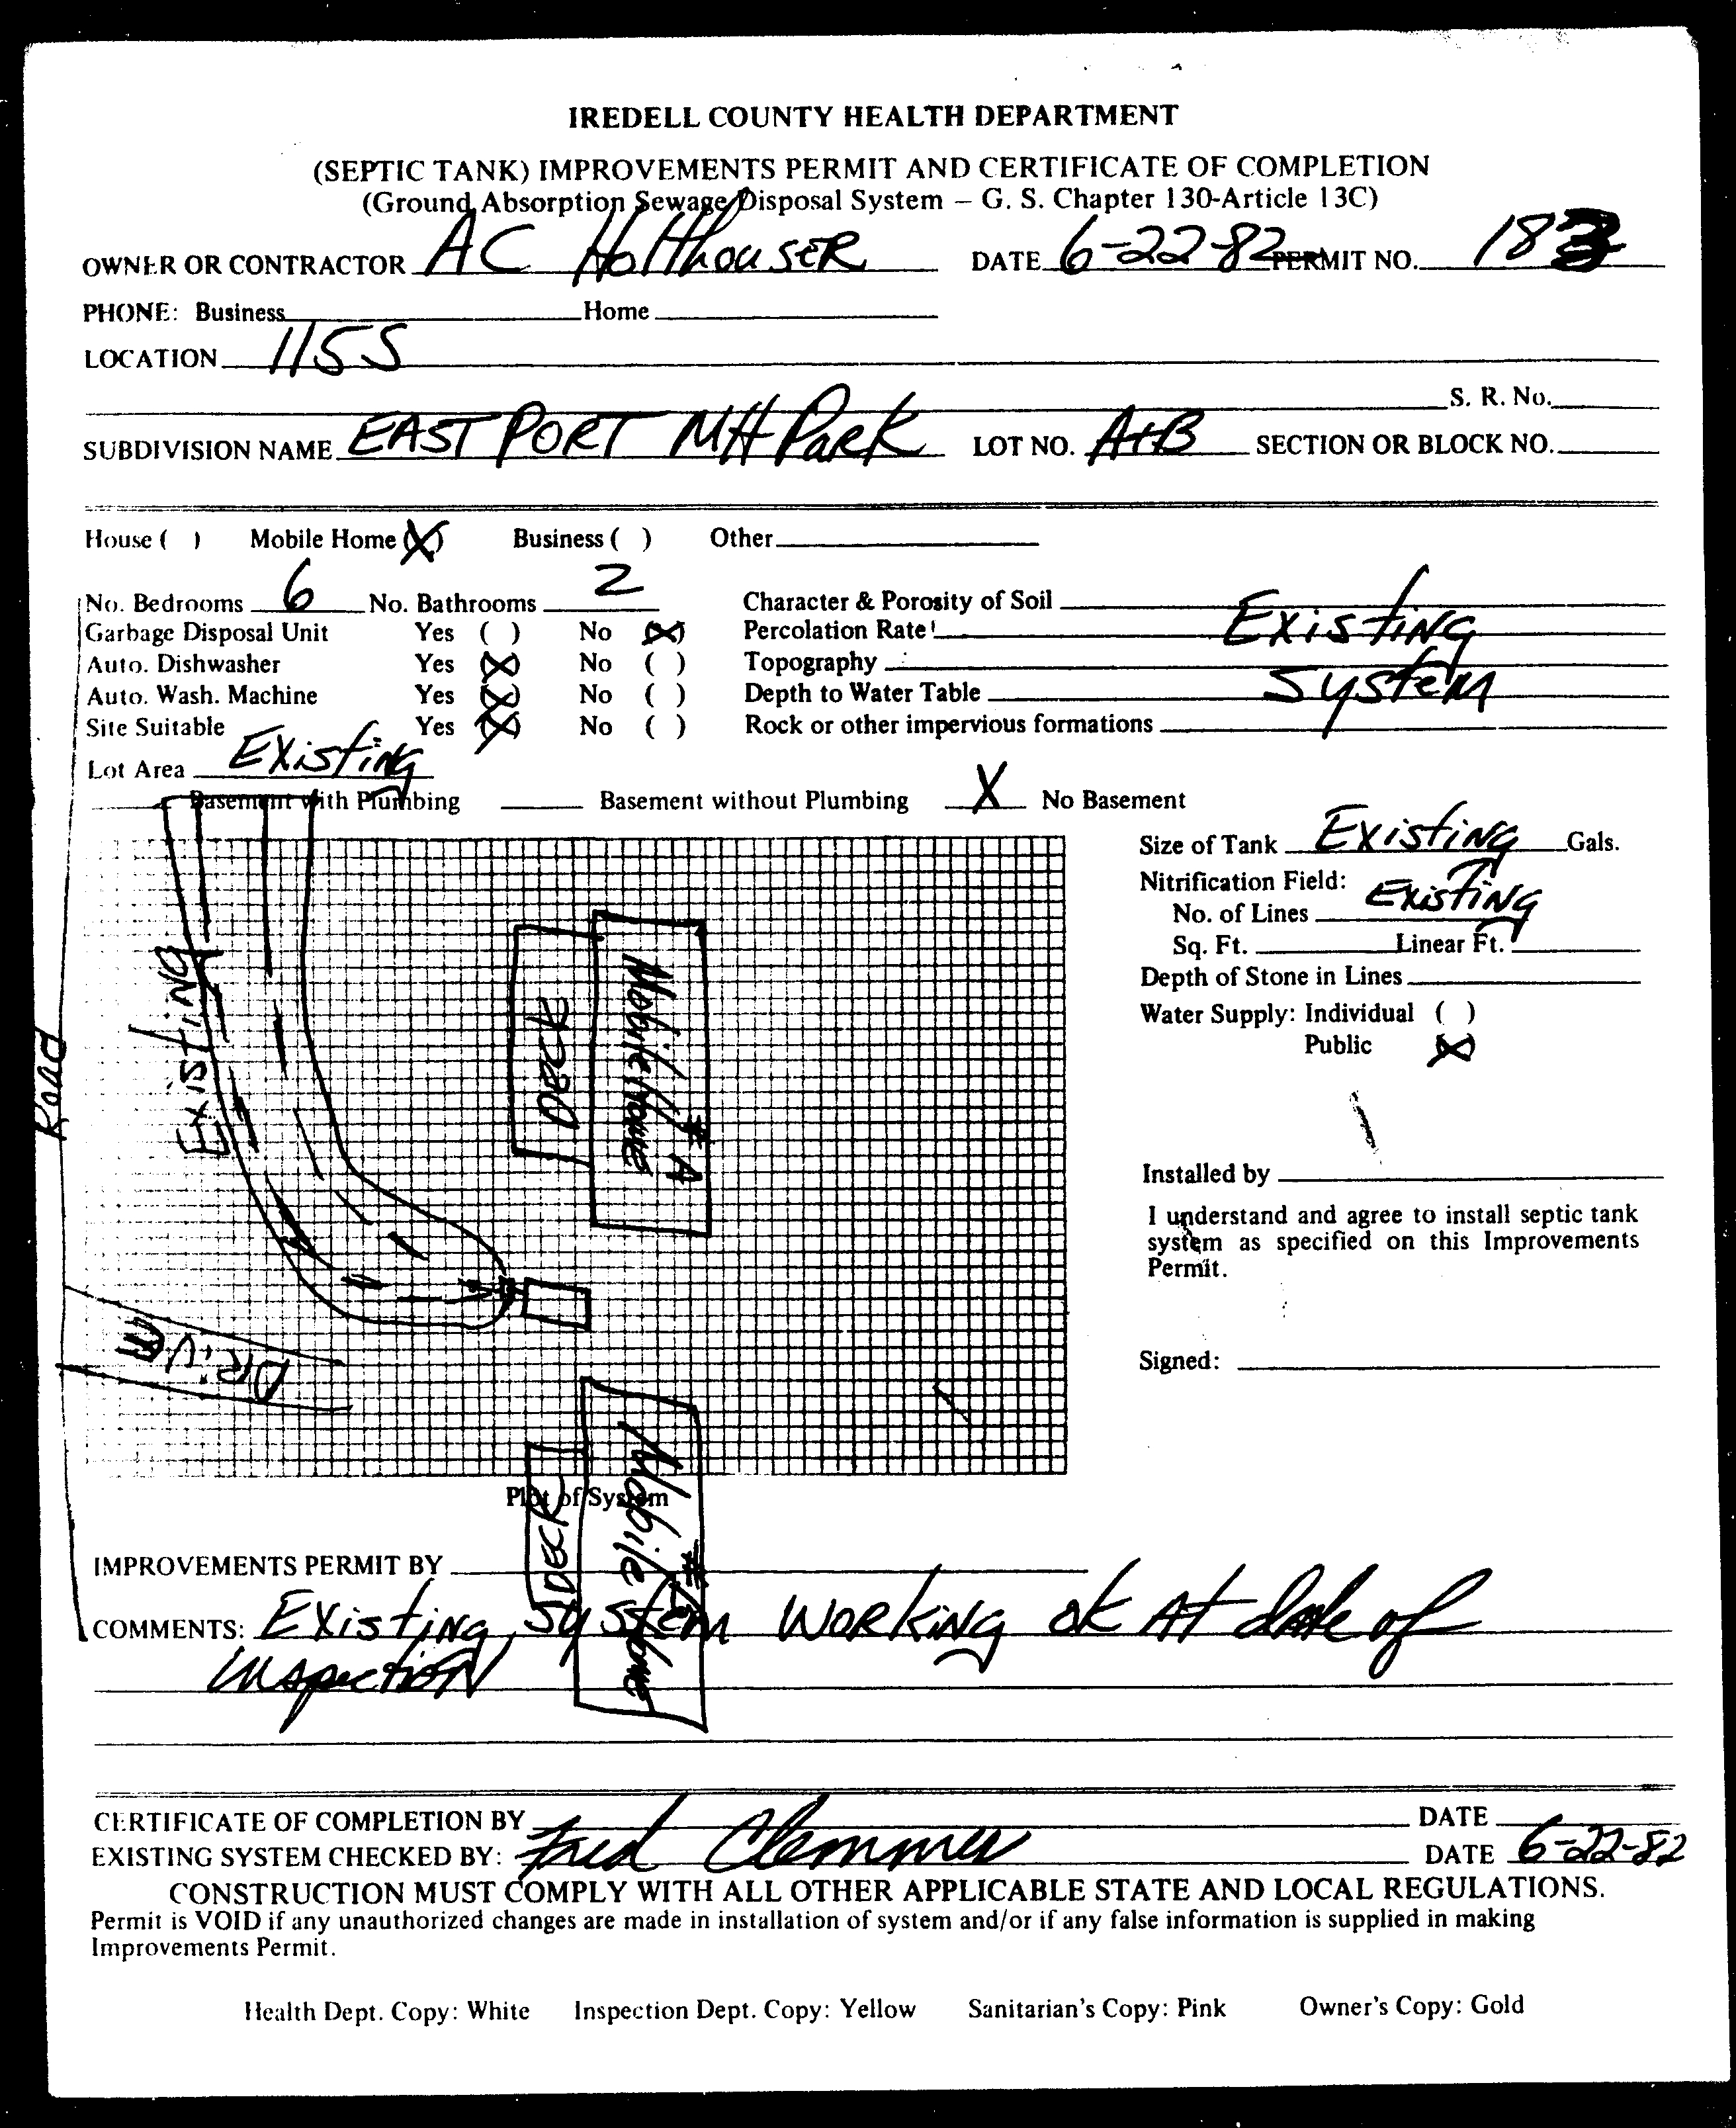 IREDELL COUNTY HEALTH DEPARTMENT
(SEPTIC TANK) IMPROVEMENTS PERMIT AND CERTIFICATE OF COMPLETION
(Ground Absorption Sewage Disposal System – G. S. Chapter 130-Article 13C)
OWNER OR CONTRACTOR AC Holthouser DATE 6-22-82 PERMIT NO. 183
PHONE: Business Home
LOCATION 1155
S. R. No.
SUBDIVISION NAME EAST PORT MH Park LOT NO. A+B SECTION OR BLOCK NO.
House ( ) Mobile Home (X) Business ( ) Other
No. Bedrooms 6 No. Bathrooms 2 Character & Porosity of Soil
Garbage Disposal Unit Yes ( ) No (X) Percolation Rate Existing
Auto. Dishwasher Yes (X) No ( ) Topography
Auto. Wash. Machine Yes (X) No ( ) Depth to Water Table System
Site Suitable Yes (X) No ( ) Rock or other impervious formations
Lot Area Existing
Basement with Plumbing Basement without Plumbing X No Basement
Size of Tank Existing Gals.
Nitrification Field:
No. of Lines Existing
Sq. Ft. Linear Ft.
Depth of Stone in Lines
Water Supply: Individual ( )
Public (X)
Installed by
I understand and agree to install septic tank
system as specified on this Improvements
Permit.
Signed:
Road
Existing
DECK
Mobile Home
# A
DRIVE
DECK
Mobile Home
#
Plot of System
IMPROVEMENTS PERMIT BY
COMMENTS: Existing System Working ok At date of
inspection
CERTIFICATE OF COMPLETION BY DATE
EXISTING SYSTEM CHECKED BY: Fred Clemmer DATE 6-22-82
CONSTRUCTION MUST COMPLY WITH ALL OTHER APPLICABLE STATE AND LOCAL REGULATIONS.
Permit is VOID if any unauthorized changes are made in installation of system and/or if any false information is supplied in making
Improvements Permit.
Health Dept. Copy: White Inspection Dept. Copy: Yellow Sanitarian's Copy: Pink Owner's Copy: Gold